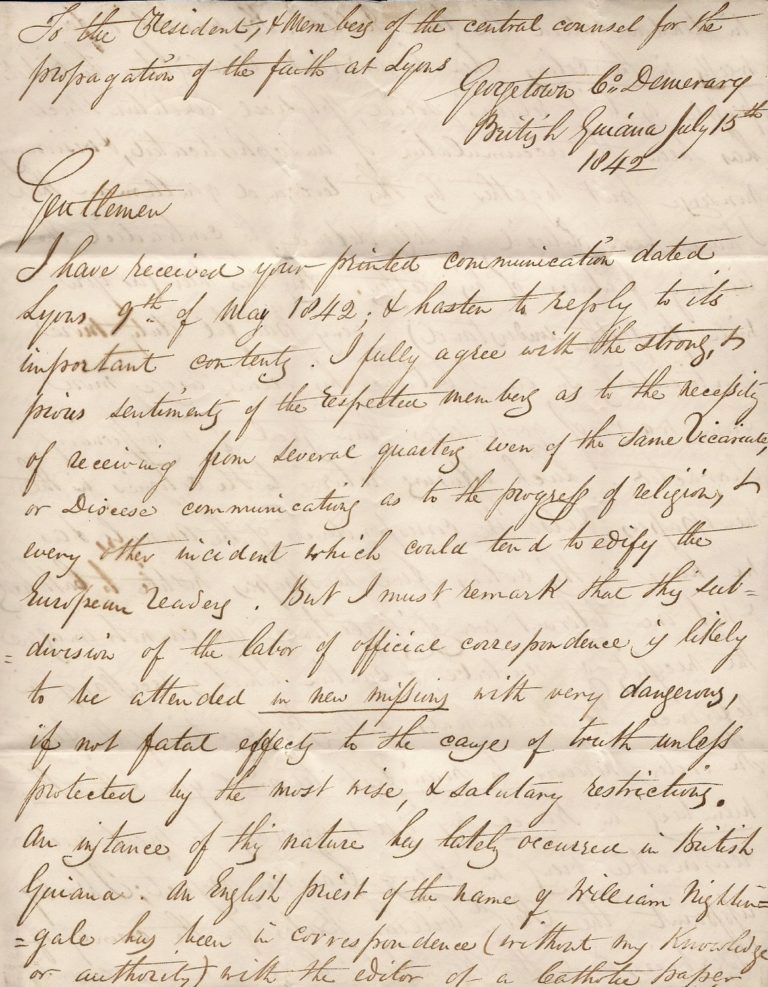 To the President, & Members of the central counsel for the
propagation of the faith at Lyons
Georgetown Co. Demerary
British Guiana July 15th
1842
Gentlemen
I have received your printed communication dated
Lyons 9th of May 1842; & hasten to reply to its
important contents. I fully agree with the strong, &
pious sentiments of the respected members as to the necessity
of receiving from several quarters even of the same Vicariate,
or Diocese communications as to the progress of religion, &
every other incident which could tend to edify the
European readers. But I must remark that this sub=
=division of the labor of official correspondence is likely
to be attended in new missions with very dangerous,
if not fatal effects to the cause of truth unless
protected by the most wise, & salutary restrictions.
An instance of this nature has lately occurred in British
Guiana. An English priest of the name of William Nightin=
=gale has been in correspondence (without my Knowledge
or authority) with the editor of a Catholic paper